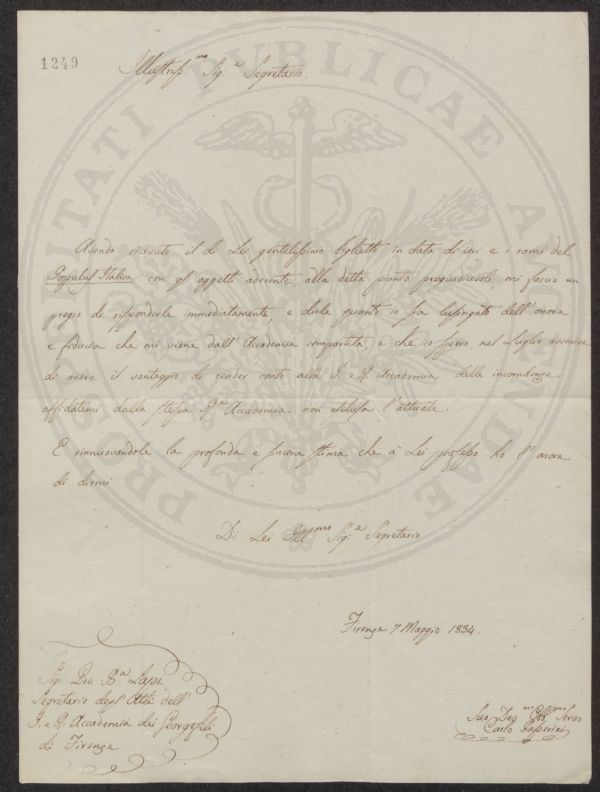 1249
Illustriss.mo Sig.e Segretario.
Avendo ricevuto il di Lei gentilissimo biglietto in data di ieri e i rami del
Populus Italica con gl'oggetti aderente alla detta pianta pregiudicevoli mi faccio un
pregio di risponderle immediatamente, e dirle quanto io sia lusingato dell'onore
e fiducia che mi viene dall'Accademia compartita, e che io spero nel Luglio
di avere il vantaggio di render conto alla I. e R. Accademia delle incombenze
affidatemi dalla stessa R. Accademia non esclusa l'attuale.
E rinnuovandole la profonda e sincera stima che à Lei professo ho l'onore
di dirmi
Di Lei Ill.mo Sig.e Segretario
Firenze 7 Maggio 1834.
Sig.
Segretario degl'Atti dell'
I. e R. Accademia dei Georgofili
di Firenze
Suo Dev.mo Obb.mo Servo
Carlo Passerini
PROSPERITATI PUBLICAE AUGENDAE